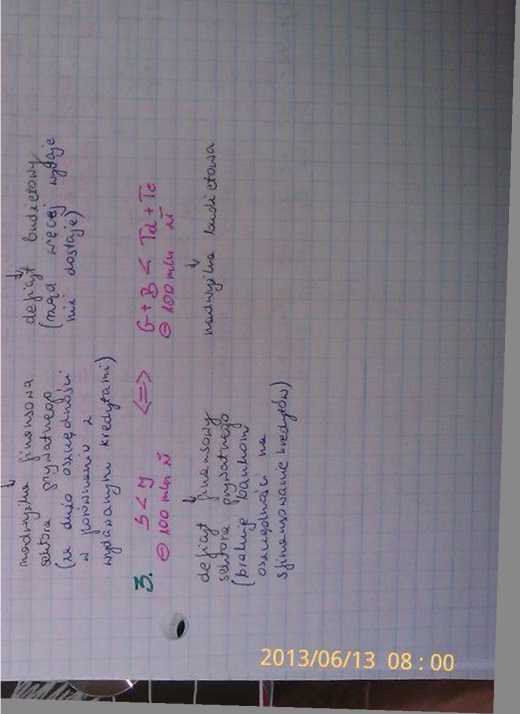 ↓
nadwyżka finansowa
sektora prywatnego
(za dużo oszczędności
w porównaniu z
wydawanymi kredytami)
↓
deficyt budżetowy
(rząd więcej wydaje
niż dostaje)
3. S < I <=> G + B < Td + Te
⊖ 100 mln zł ⊖ 100 mln zł
↓
deficyt finansowy
sektora prywatnego
(brakuje bankom
oszczędności na
sfinansowanie kredytów)
↓
nadwyżka budżetowa
2013/06/13 08:00